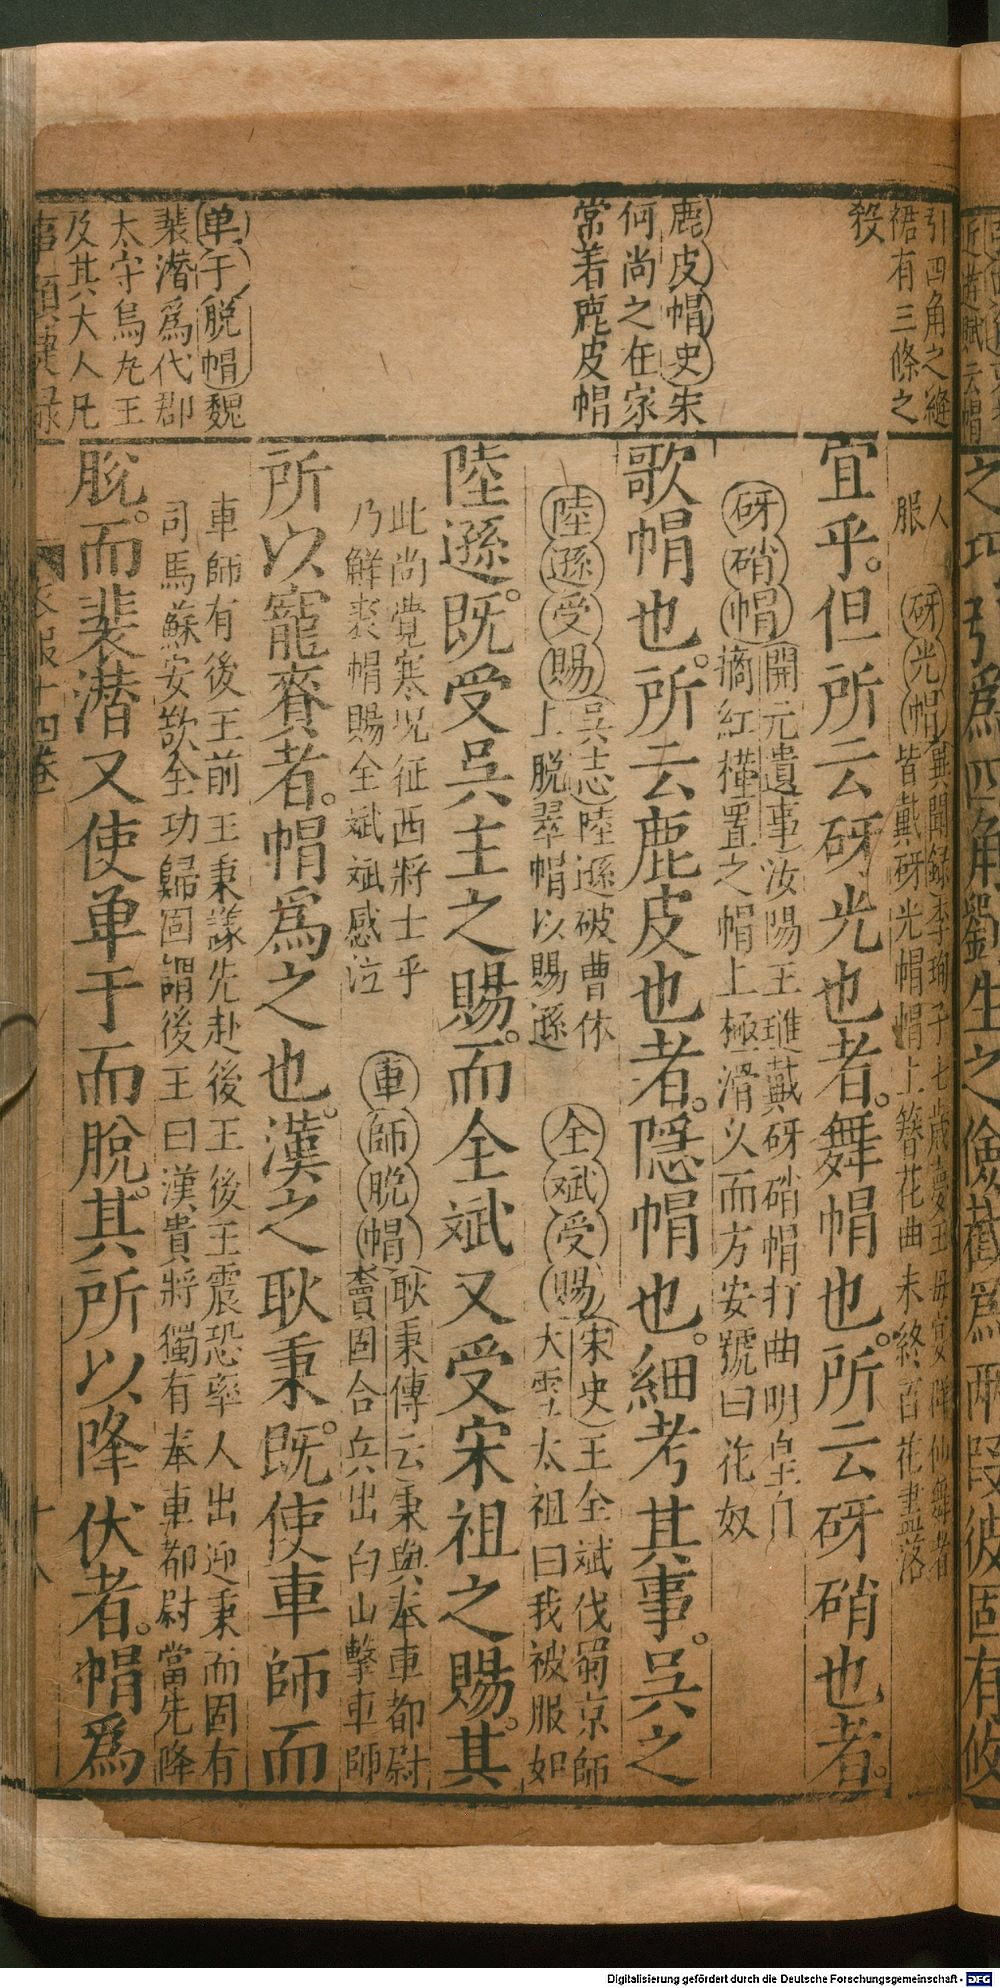 引四角之縫
裙有三條之
殺
鹿皮帽史宋
何尚之在家
常着鹿皮帽
单于脱帽魏
裴潛爲代郡
太守烏九王
及其大人凡
人
服
砑光帽異聞録李珣子七歲夢王母宴群仙舞者
皆戴砑光帽帽上簪花曲未終百花盡落
宜乎但所云砑光也者舞帽也所云砑硝也者
砑硝帽開元遺事汝陽王璡戴砑硝帽打曲明皇
摘紅槿置之帽上極滑久而方安號曰花奴
歌帽也所云鹿皮也者隐帽也細考其事吴之
陸遜受賜吳志陸遜破曹休
上脱翠帽以賜遜
全斌受賜宋史王全斌伐蜀京師
大雪太祖曰我被服如
陸遜既受吳主之賜而全斌又受宋祖之賜其
此尚覺寒况征西將士乎
乃解裘帽賜全斌斌感泣
車師脱帽耿秉傳云秉與奉車都尉
竇固合兵出白山擊車師
所以寵賚者帽爲之也漢之耿秉既使車師而
車師有後王前王秉議先赴後王後王震恐率人出迎秉而固有
司馬蘇安欲全功歸固謂後王曰漢貴將獨有奉車都尉當先降
脱而裴潛又使单于而脫其所以降伏者帽爲
衣服十四卷
十八
之巧引爲四角劉生之儉截爲兩段彼固有攸
Digitalisierung gefördert durch die Deutsche Forschungsgemeinschaft - DFG